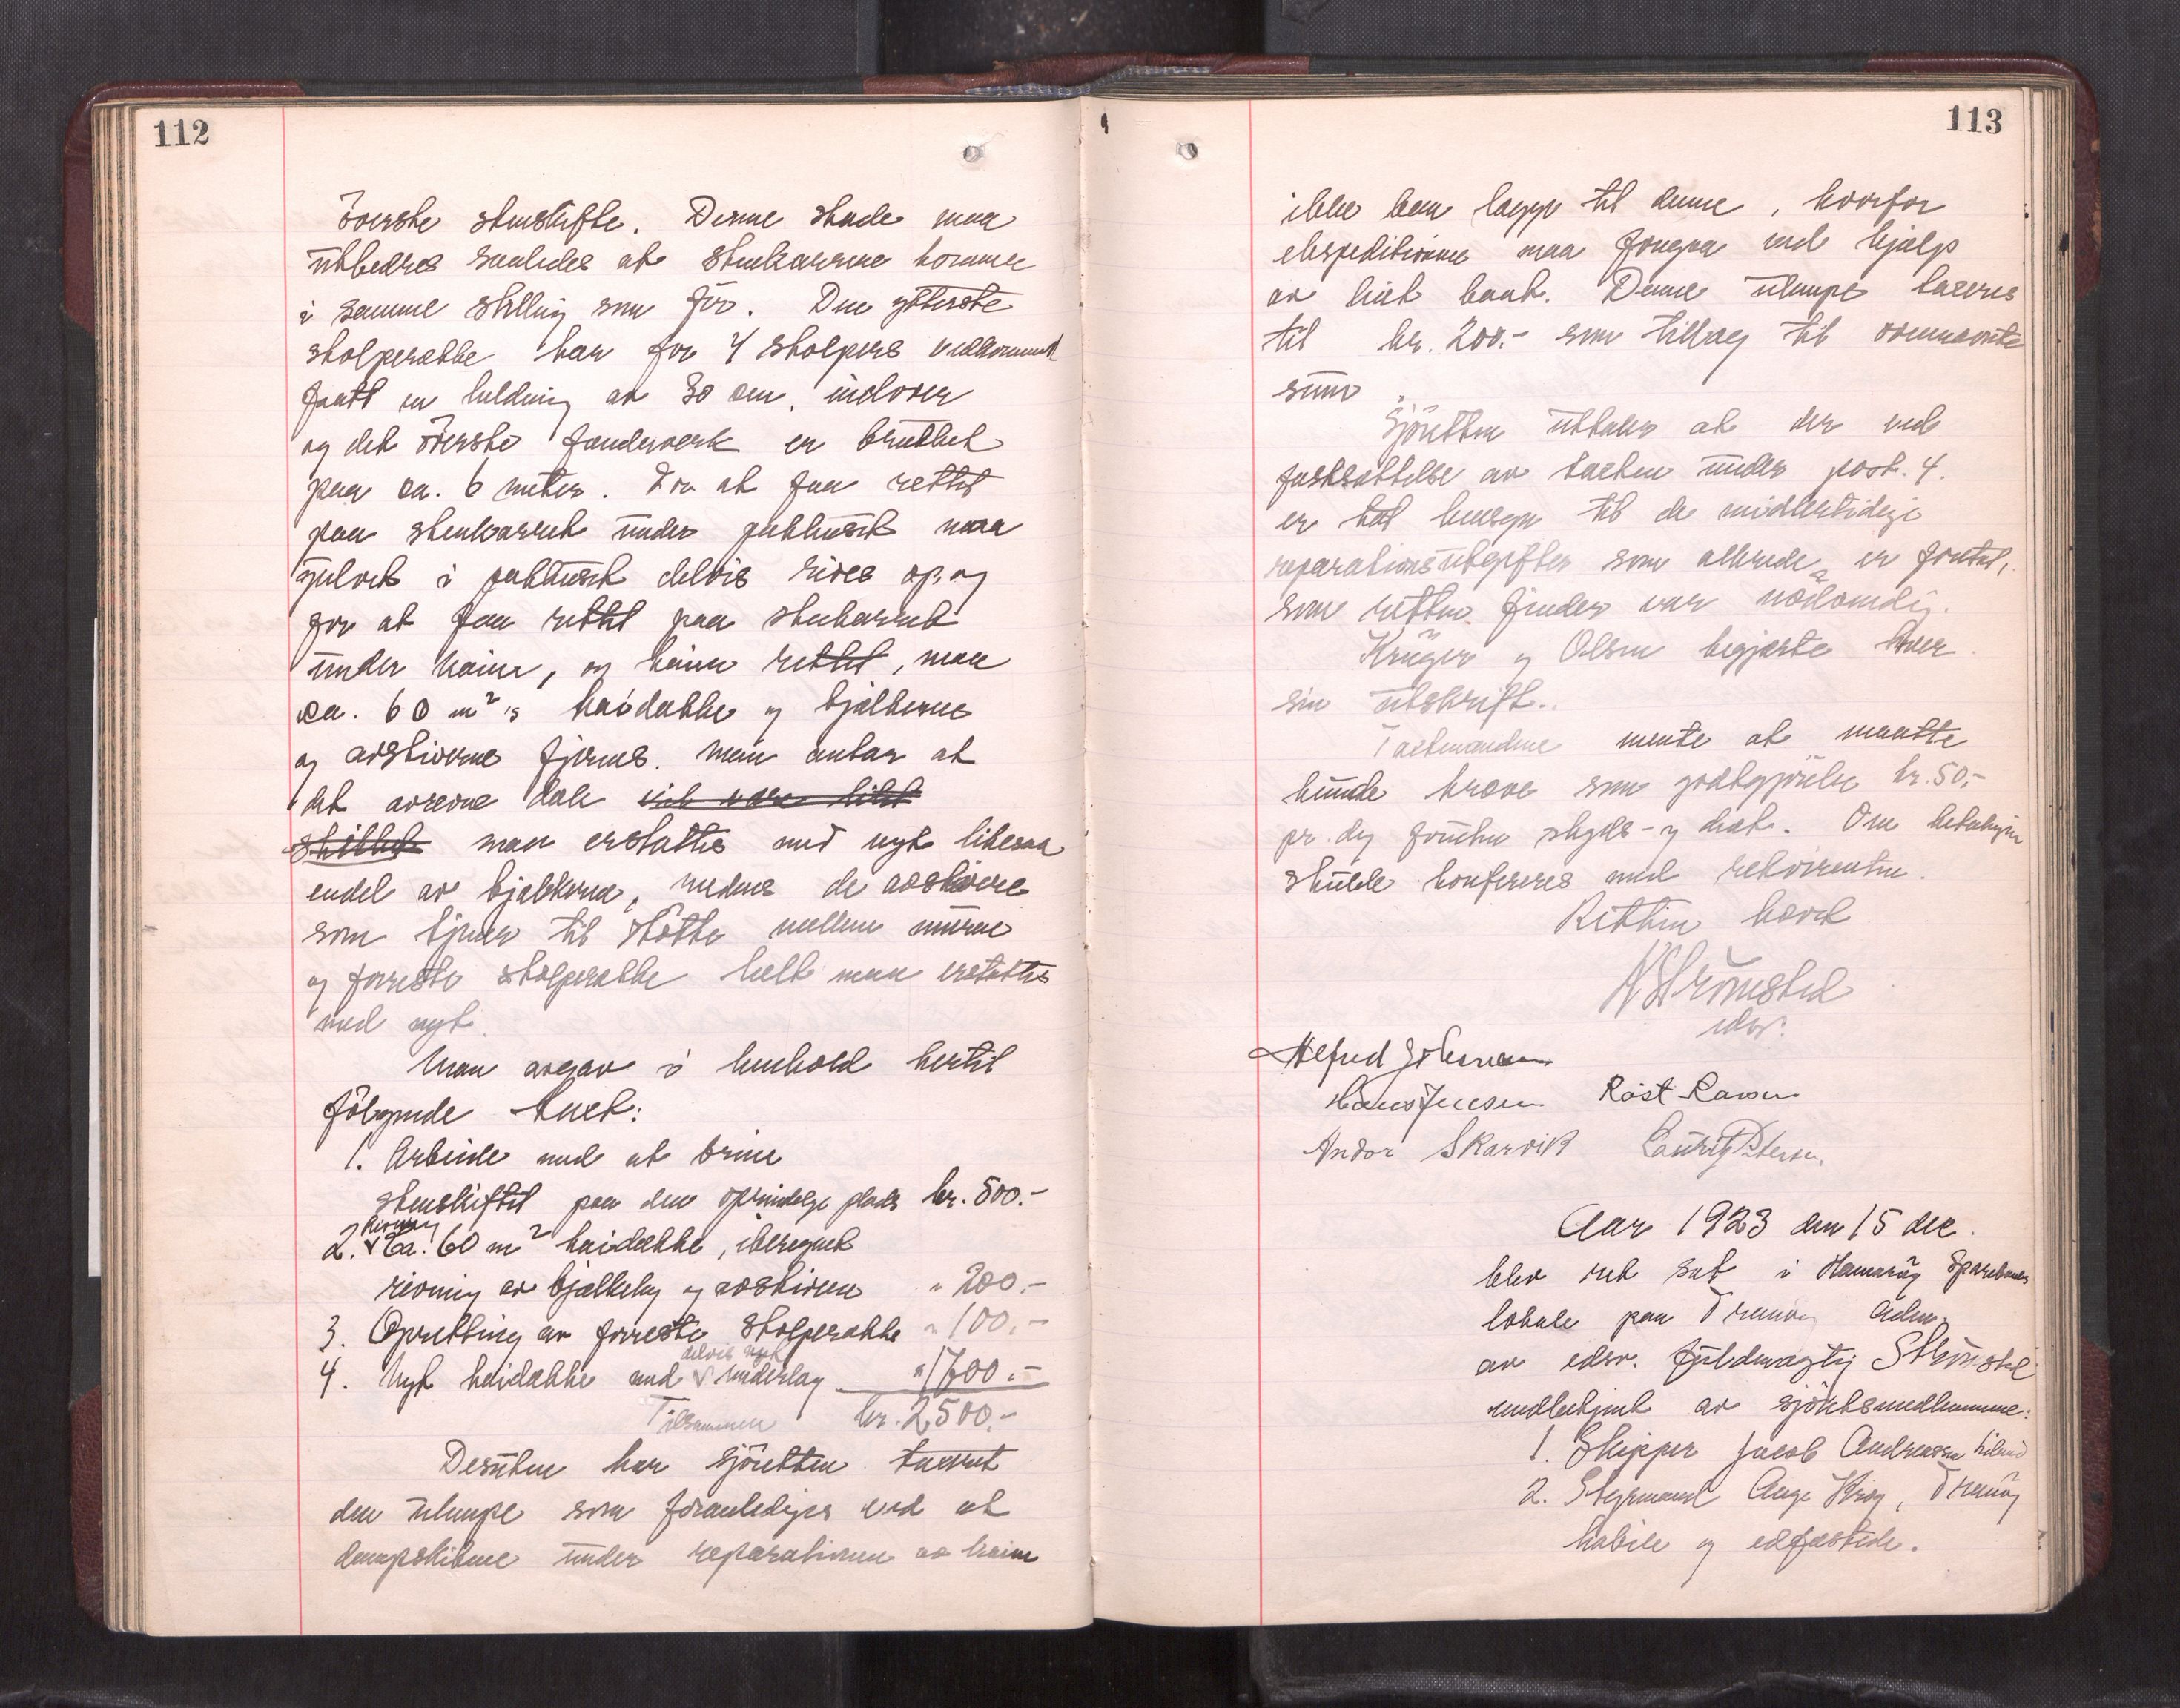 112
øverste stenskifte. Denne skade maa
utbedres saaledes at stenkarrene kommer
i samme stilling som før. Den ytterste
stolperække har for 4 stolpers vedkommende
faatt en heldning av 30 cm. indover
og det øverste fenderverk er brukket
paa ca. 6 meter. For at faa rettet
paa stenkarret under pakhuset maa
gulvet i pakhuset delvis rives op og
for at faa rettet paa stenkarret
under kaien, og kaien rettet, maa
ca. 60 m²'s kaidække og bjelkerne
og avstiverne fjernes. Man antar at
det avrevne dæk vil være likt
skikket maa erstattes med nyt likesaa
endel av bjelkerne, medens de avstivere
som tjener til støtte mellem muren
og forreste stolperække helt maa erstattes
med nyt.
Man avgav i henhold hertil
følgende takst:
1. Arbeide med at bringe
stenskiftet paa den oprindelige plads kr. 500.-
2. Rivning ca. 60 m² kaidække, iberegnet
rivning av bjelkelag og avstivere " 200.-
3. Opretting av forreste stolperække " 100.-
4. Nyt kaidække med delvis nyt underlag " 1700.-
Tilsammen kr. 2500.-
Desuten har sjøretten taxeret
den ulempe som foranlediges ved at
dampskibene under reparationen av kaien
113
ikke kan lægge til denne, hvorfor
ekspeditionen maa foregaa ved hjælp
av leiet baat. Denne ulempe taxeres
til kr. 200.- som tillæg til ovennævnte
sum.
Sjøretten uttaler at der ved
fastsættelse av taksten under post. 4.
er tat hensyn til de midlertidige
reparationsutgifter som allerede er foretat,
som retten finder var nødvendig.
Krüger og Olsen begjærte hver
sin utskrift.
Takstmændene mente at maatte
kunde kræve som godtgjørelse kr. 50.-
pr. dag foruten skyds- og diæt. Om betalingen
skulde konfereres med rekvirenten.
Retten hævet
N Strømsted
edsv.
Alfred Johansen
Hans Jensen Røst Larsen
Andor Skarvik Lauritz Petersen.
Aar 1923 den 15 dec.
blev ret sat i Hamarøy Sparebanks
lokale paa Tranøy adm.
av edsv. fuldmægtig Strømsted
medbetjent av sjøretsmedlemmene:
1. Skipper Jacob Andreassen
2. Styrmand Aage Krog, Tranøy
habile og edfæstede.